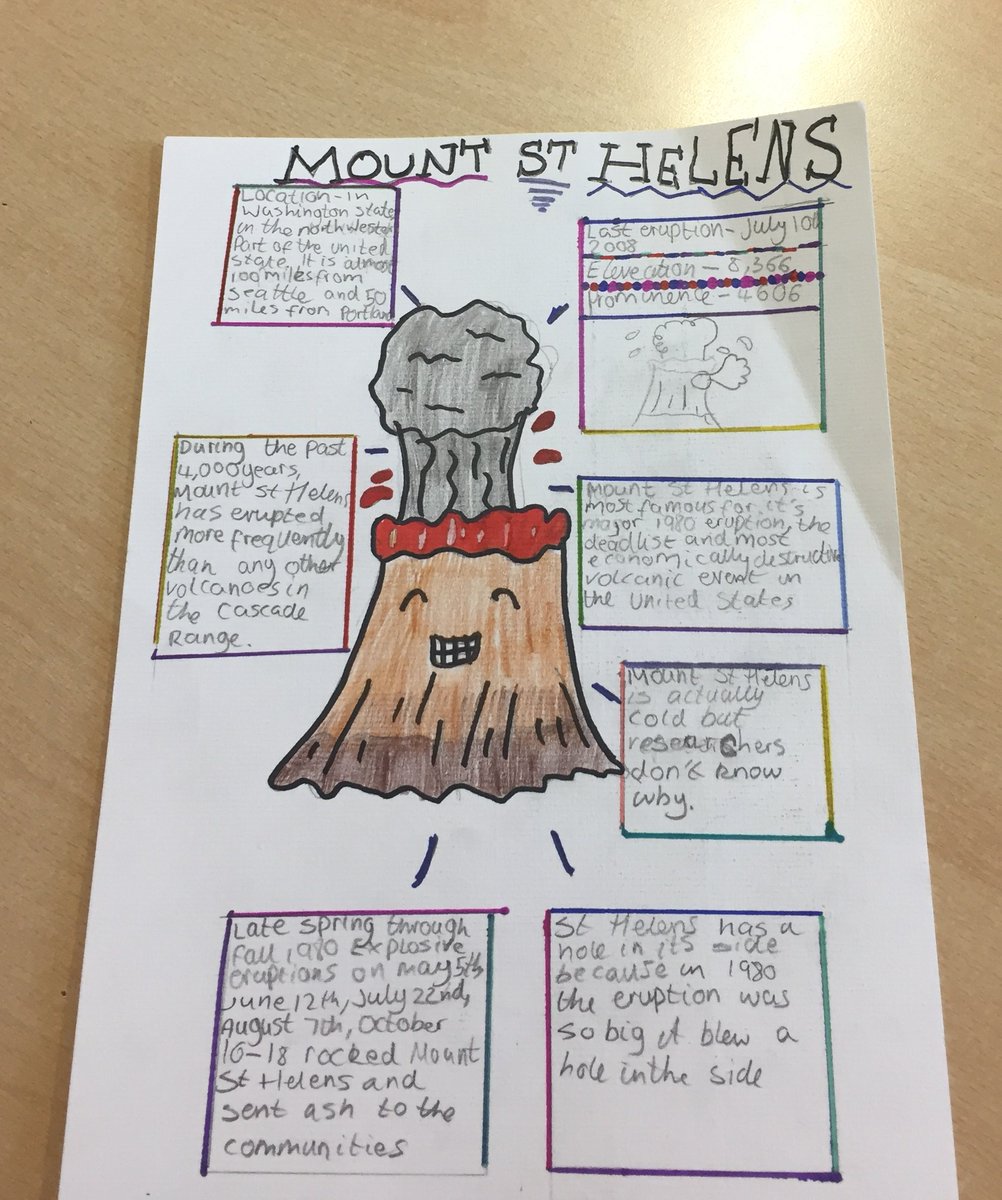 MOUNT ST HELENS
Location-in
Washington state
in the northwester
Part of the united
state. It is almost
100 miles from
seattle and 50
miles from Portland
Last eruption- July 10th
2008
Elevecation - 8,366
Prominence - 4606
During the Past
4,000 years,
Mount St Helens
has erupted
more frequently
than any other
volcanoes in
the Cascade
Range.
Mount St Helens is
most famous for it's
major 1980 eruption, the
deadlist and most
economically destructive
volcanic event in
the United States
Mount St Helens
is actually
cold but
researchers
don't know
why.
Late spring through
fall 1980 Explosive
eruptions on may 5th
June 12th, July 22nd,
August 7th, October
16-18 rocked Mount
St Helens and
sent ash to the
communities
St Helens has a
hole in its side
because in 1980
the eruption was
so big it blew a
hole in the side